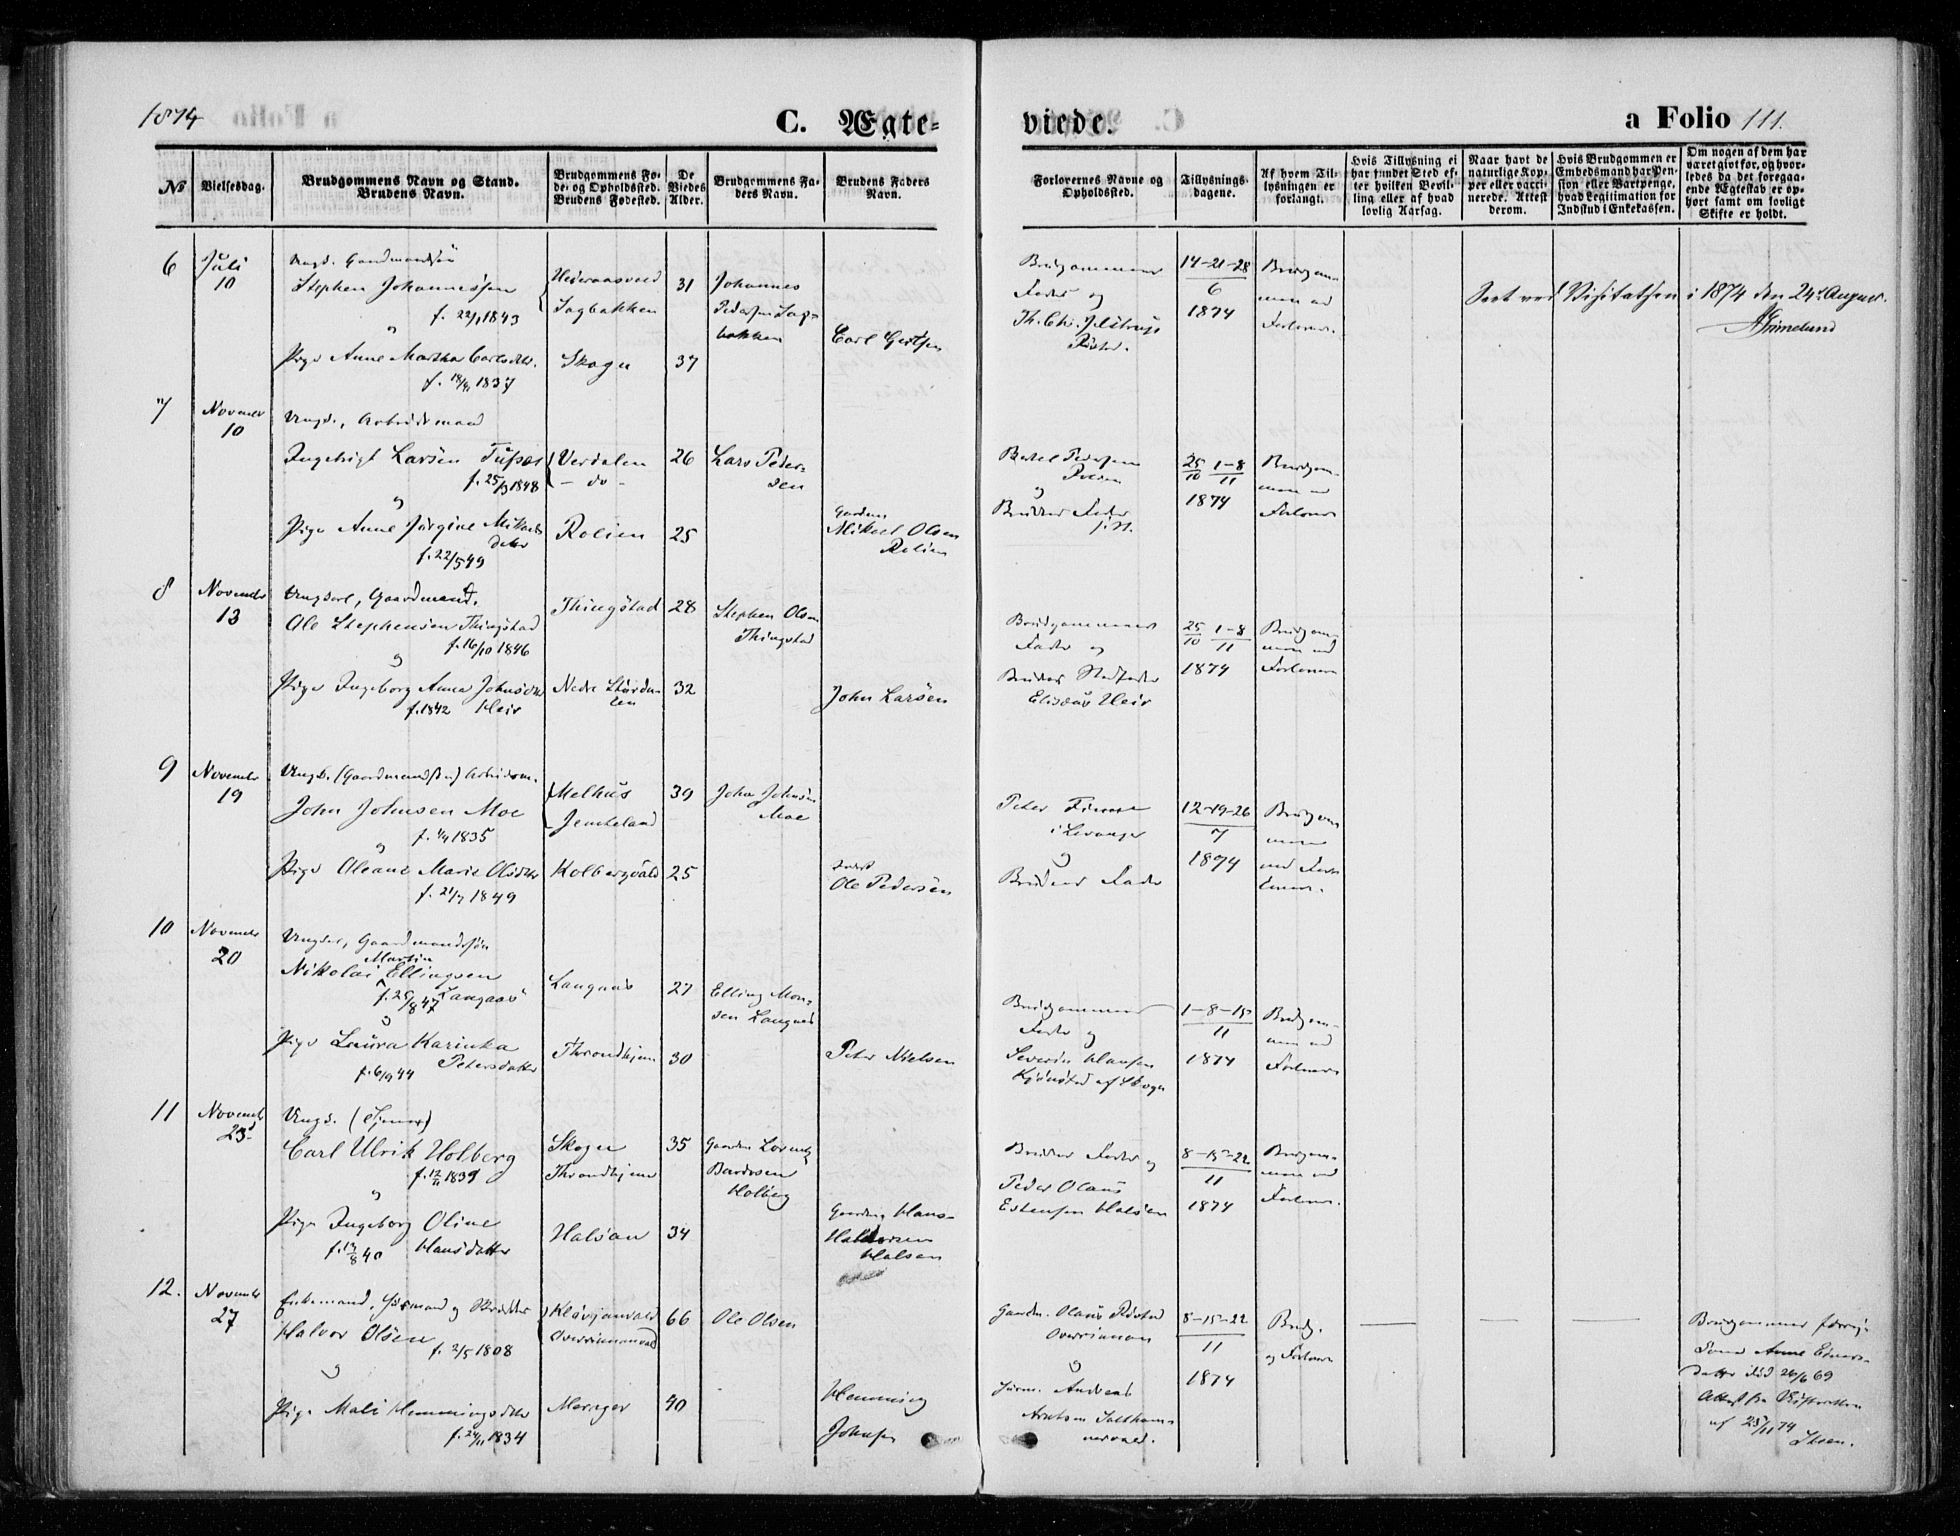 1874
C. Ægte-
viede.
a Folio 111.
No
Vielsesdag.
Brudgommens Navn og Stand.
Brudens Navn.
Brudgommens Fø-
de- og Opholdssted.
Brudens Fødested.
De
Viedes
Alder.
Brudgommens Fa-
ders Navn.
Brudens Faders
Navn.
Forlovernes Navne og
Opholdssted.
Tillysnings-
dagene.
Af hvem Til-
lysningen er
forlangt.
Hvis Tillysning ei
har fundet Sted ef-
ter hvilken Bevil-
ling eller af hvad
lovlig Aarsag.
Naar havt de
naturlige Kop-
per eller vacci-
nerede. Attest
derom.
Hvis Brudgommen er
Embedsmand har Pen-
sion eller Vartpenge,
hvad Legitimation for
Indskud i Enkekassen.
Om nogen af dem har
været givt før, og hvor-
ledes da det foregaa-
ende Ægteskab er op-
hørt samt om lovligt
Skifte er holdt.
6
Juli
10
Ungk. Gaardmandssøn
Stephen Johannessen
f. 22/1 1843
og
Pige Anne Martha Carlsdtr.
f. 18/11 1837
Sagbakken
Skogn
31
37
Johannes
Pedersen Sag-
bakken
Carl
Brudgommens
Fader og
14-21-28
6
1874
Brudgom-
men og
Forlover.
Seet ved Visitatsen i 1874 den 24de August.
Grimelund
7
November
10
Ungk., Arbeidsmand
Ingebrigt Larsen
f. 25/3 1848
og
Pige Anne Jørgine Mikals
datter
f. 22/5 49
Verdalen
- do -
Rolien
26
25
Lars Peder-
sen
Gaardm.
Mikael Olsen
Rolien
Pedersen
og
Brudens Fader
25/10 1-8/11
1874
Brudgom-
men og
Forlover
8
November
13
Ungkarl, Gaardmand.
Ole Stephensen Thingstad
f. 16/10 1846
og
Pige Ingeborg Anna Johnsdtr
f. 1842 Heir
Thingstad
Nedre Stjørda-
len
28
32
Stephen Olsen
Thingstad
John Larsen
Brudgommens
Fader og
Brudens Stedfader
Elisæus Heir
25/10 1-8/11
1874
Brudgom-
men og
Forlover
9
November
19
Ungk. (Gaardmandssøn) Arbeidsm.
John Johnsen Moe
f. 1/4 1835
og
Pige Oleana Marie Olsdtr
f. 21/7 1849
Melhus
Jemteland
Kolbergvald
39
25
John Johnsen
Moe
Ole Pedersen
Peter
i Levanger
og
Brudens Fader
12-19-26
7
1874
Brudgom-
men
med For-
lover.
10
November
20
Ungkarl, Gaardmandssøn
Martin
Nikolai Ellingsen
f. 25/8 47 Langaas
og
Pige Laura Karinka
Petersdatter
f. 6/9 44
Langaas
Throndhjem
27
30
Elling Mon-
sen Langaas
Peter Nielsen
Brudgommens
Fader og
Severin Hansen
Kjønstad af Skogn
1-8-15
11
1874
Brudgom-
men og
Forlover
11
November
23d
Ungk. (Tjener)
Carl Ulrik Holberg
f. 12/11 1839
og
Pige Ingeborg Oline
f. 13/8 40 Hansdatter
Skogn
Throndhjem
Halsan
35
34
Gaardm. Lorents
Bardosen
Holberg
Gaardm. Hans
Haldorsen
Halsan
Brudens Fader og
Peder Olaus
Estensen Halsan
8-15-22
11
1874
Brudgom-
men og
Forlover.
12.
November
27
Enkemand, Huusmand og Skrædder
Halvor Olsen
f. 2/5 1808
og
Pige Mali Hemmingsdtr
f. 24/11 1834
Meraker
66
40
Ole Olsen
Hemming
Johnsen
Gaardm. Olaus
Overrinnan
og
Huusm. Andreas
Arntsen
8-15-22
11
1874
Brudg.
og Forlover
Brudgommens forrige
Kone Anne
datter død 26/6 69
Attest fra Skifteretten
af 25/11 74